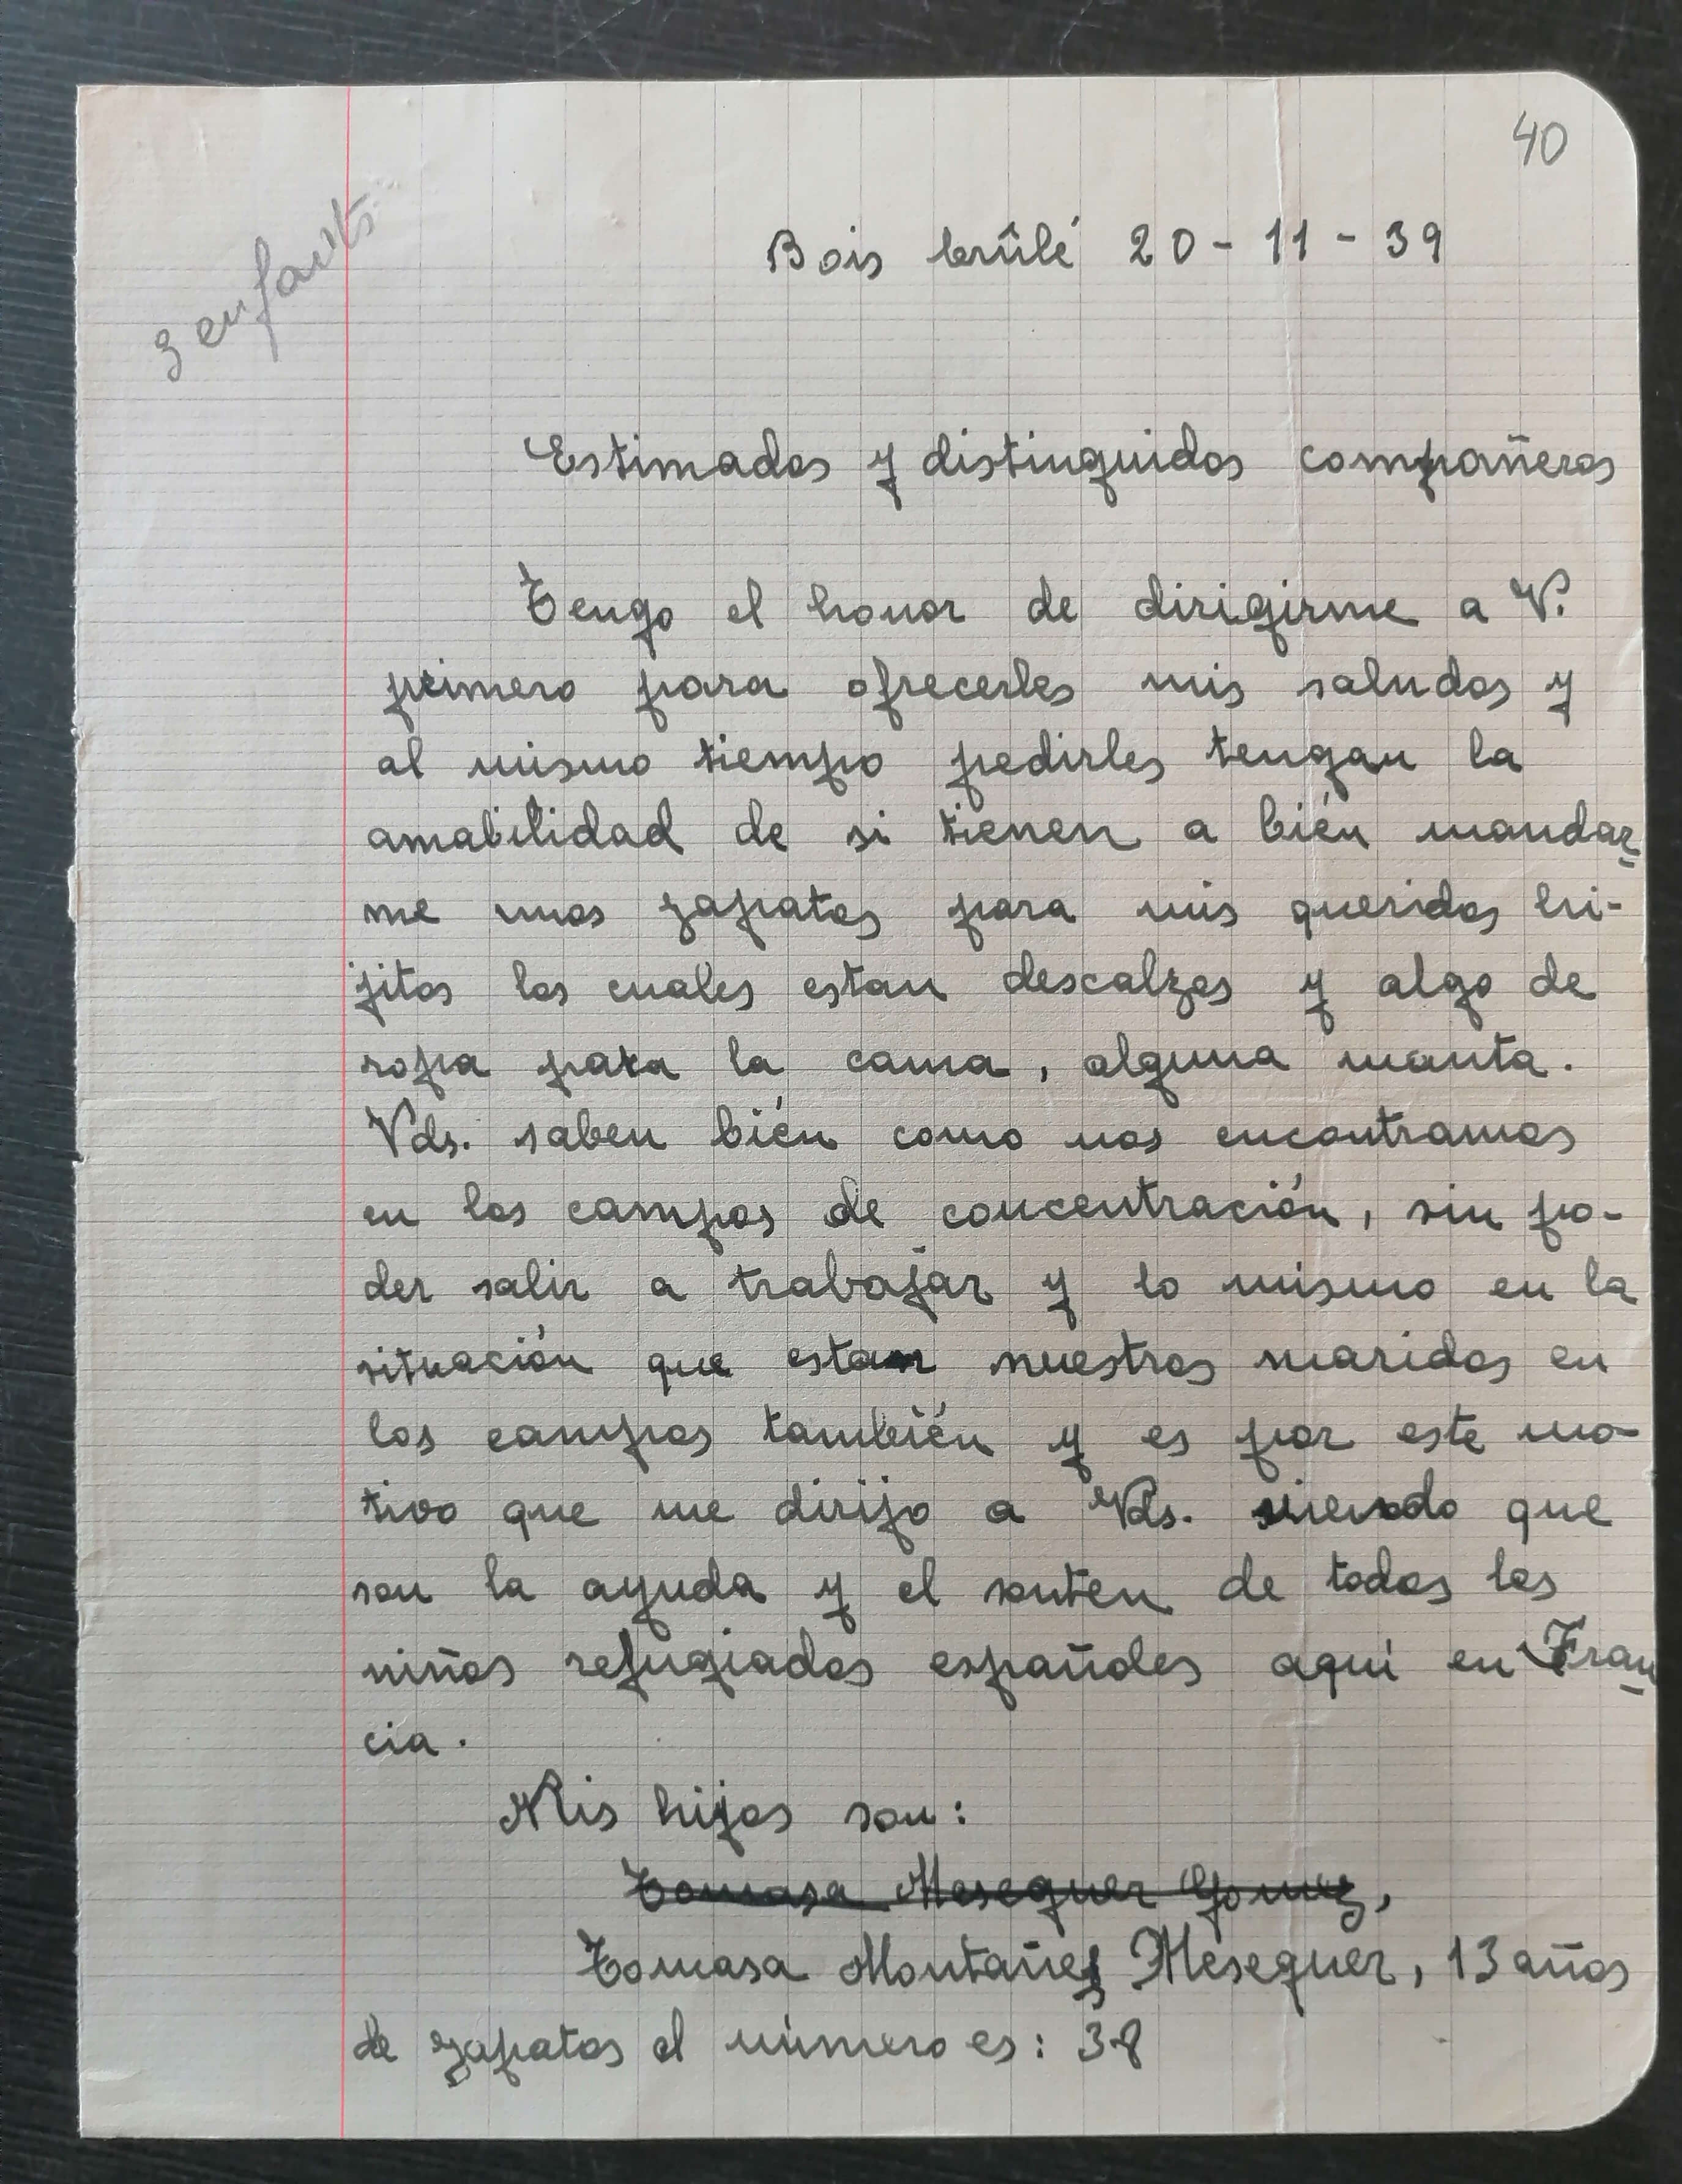 40
3 enfants
Bois brûlé 20-11-39
Estimados y distinguidos compañeros
Tengo el honor de dirigirme a V.
primero para ofrecerles mis saludos y
al mismo tiempo pedirles tengan la
amabilidad de si tienen a bién mandar-
me unos zapatos para mis queridos hi-
jitos los cuales estan descalzos y algo de
ropa para la cama, alguna manta.
Vds. saben bién como nos encontramos
en los campos de concentración, sin po-
der salir a trabajar y lo mismo en la
situación que estan nuestros maridos en
los campos también y es por este mo-
tivo que me dirijo a Vds. viendo que
son la ayuda y el sosten de todos los
niños refugiados españoles aquí en Fran-
cia.
Mis hijos son:
Tomasa Meseguer Gomez,
Tomasa Montañes Meseguer, 13 años
de zapatos el número es: 38